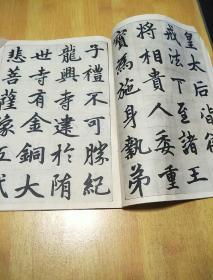 皇太后皆
戒法下至諸王
將相貴人委重
寶為施身執弟
子禮不可勝紀
龍興寺建於隋
世寺有金銅大
悲菩薩像五代